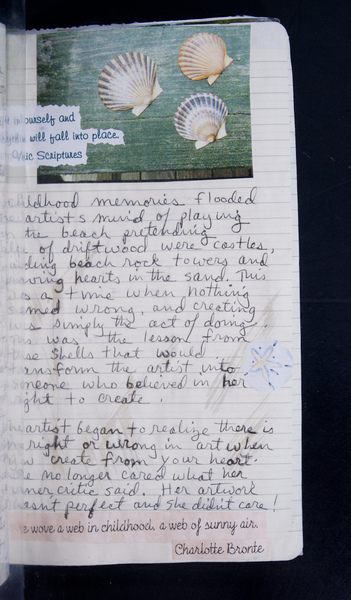 yourself and
will fall into place.
Scriptures
childhood memories flooded
artist's mind of playing
the beach pretending
of driftwood were castles,
beach rock towers and
hearts in the sand. This
a time when nothing
wrong, and creating
simply the act of doing.
was the lesson from
shells that would
transform the artist into
someone who believed in her
right to create.
artist began to realize there is
right or wrong in art when
create from your heart.
no longer cared what her
inner critic said. Her artwork
wasn't perfect and she didn't care!
wove a web in childhood, a web of sunny air.
Charlotte Bronte